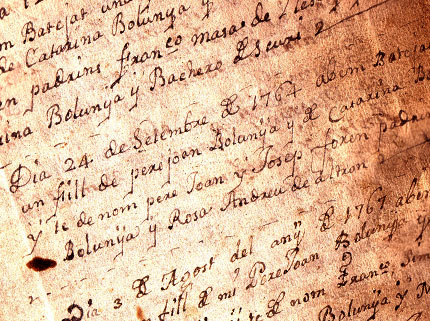 m Batejat una
de Catarina Bolunya y
en padrins Franco masa de
ina Bolunya y Bachero
Dia 24 de Setembre de 1767 abem Batejat
un fill de perejoan Bolunya y de Catarina Bo
y te de nom pere Joan y Josep foren padri
Bolunya y Rosa Andreu de
Dia 3 de Agost del any de 1767 abem
fill de mi PereJoan Bolunya y
te de nom Franco
Bolunya y